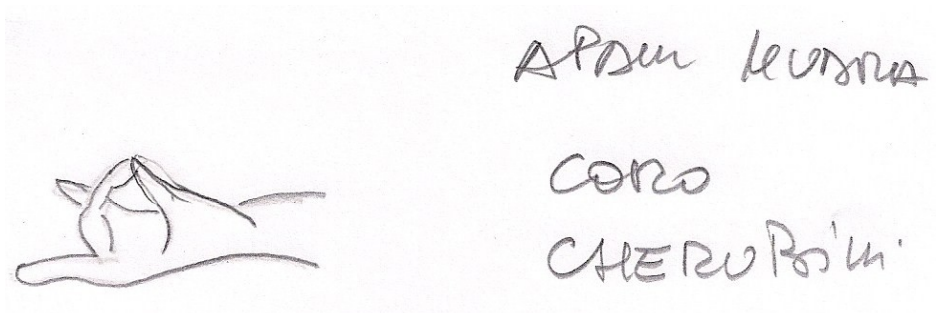 APAN MUDRA
CORO
CHERUBiNi